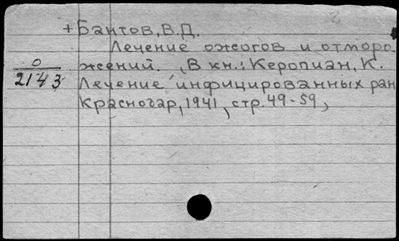 + Бантов, В.Д.
Лечение ожогов и отморо-
0 жений. В кн.: Керопиан, К.
2143 Лечение инфицированных ран
Краснодар, 1941, стр. 49-59,